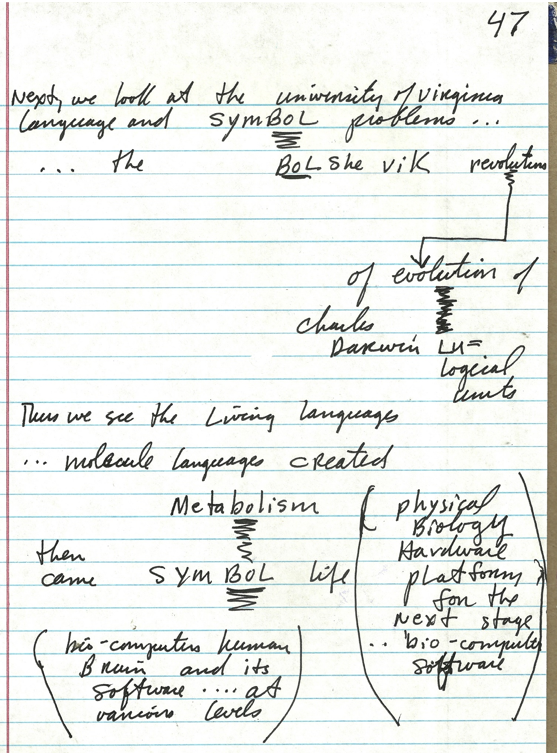 47
Next, we look at the university of virginia
Language and SYMBOL problems ...
... the BOLSHEVIK revolution
of evolution of
charles
Darwin LU=
logical
units
Thus we see the Living languages
... molecule languages created
Metabolism
then
came SYMBOL life
(bio-computers human
Brain and its
software .... at
various levels)
(physical
Biology
Hardware
platforms
for the
Next stage
.. bio-computer
software)